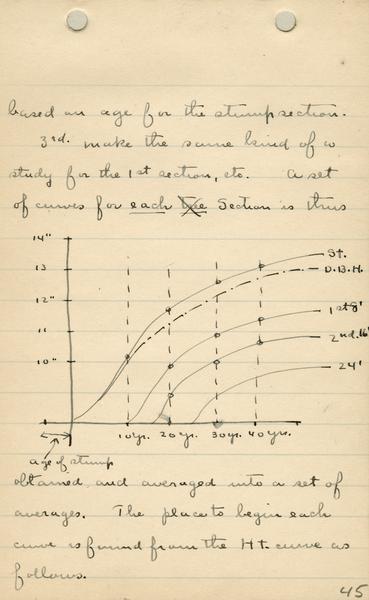 based on age for the stump section.
3rd. make the same kind of a
study for the 1st section, etc. A set
of curves for each Section is thus
14"
13
12"
11
10"
St.
D.B.H.
1st 8'
2nd. 16'
24'
10 yr. 20 yr. 30 yr. 40 yr.
age of stump
obtained and averaged into a set of
averages. The place to begin each
curve is found from the Ht. curve as
follows.
45